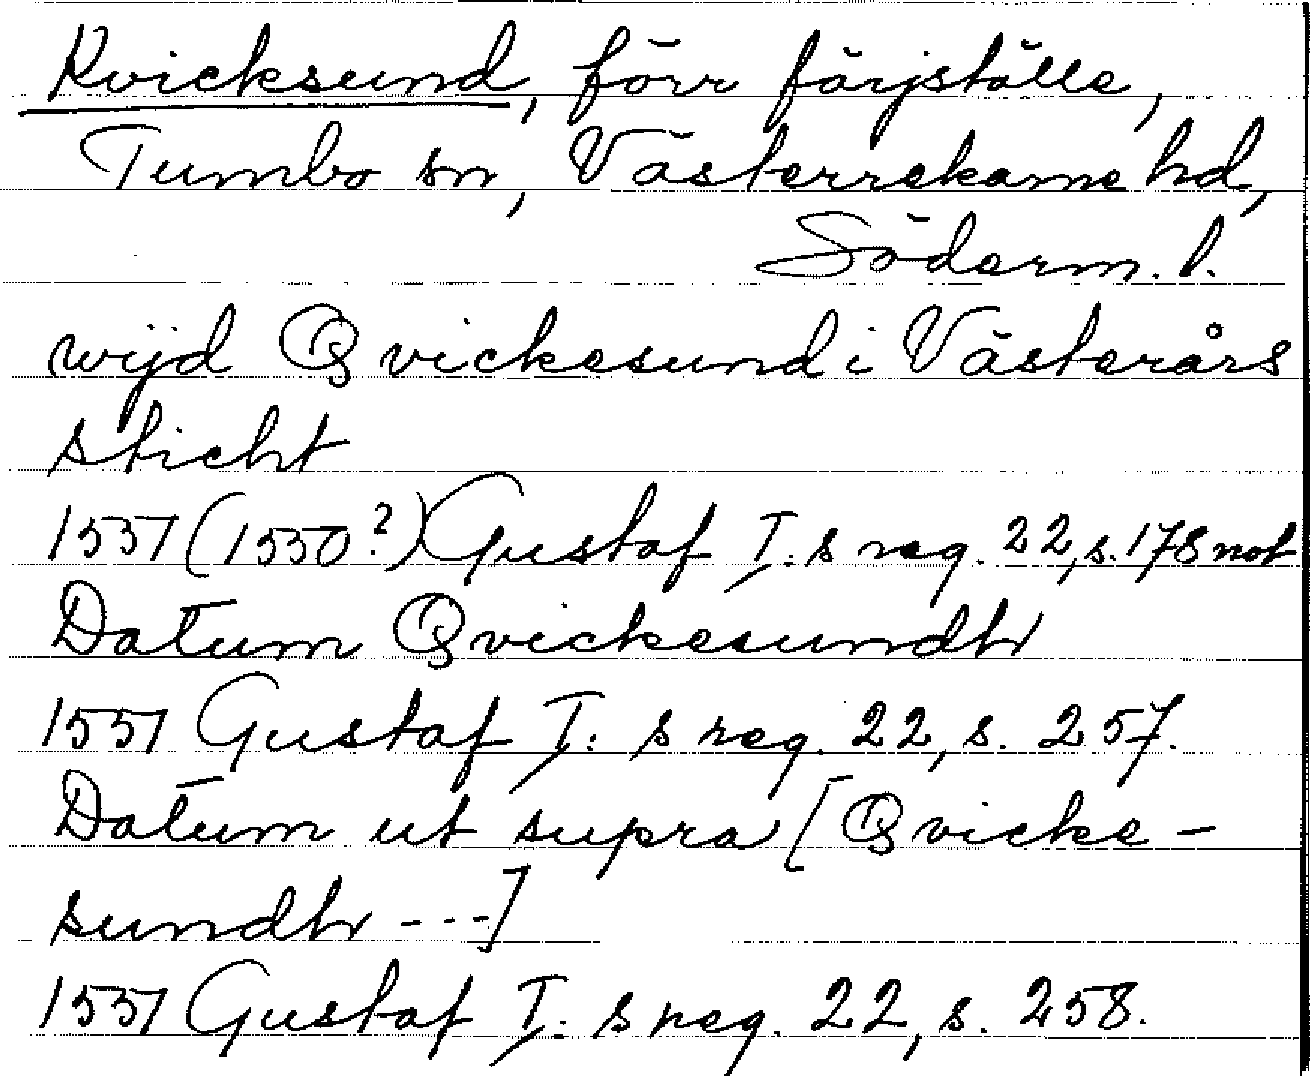 Kvicksund, förr färjställe,
Tumbo sn, Västerrekarne hd,
Söderm. l.
wijd Qvickesund i Västerårs
sticht
1551 (1550?) Gustaf I:s reg. 22, s. 178 not
Datum Qvickesundh
1551 Gustaf I:s reg. 22, s. 257.
Datum ut supra [Qvicke-
sundh ---]
1551 Gustaf I:s reg. 22, s. 258.